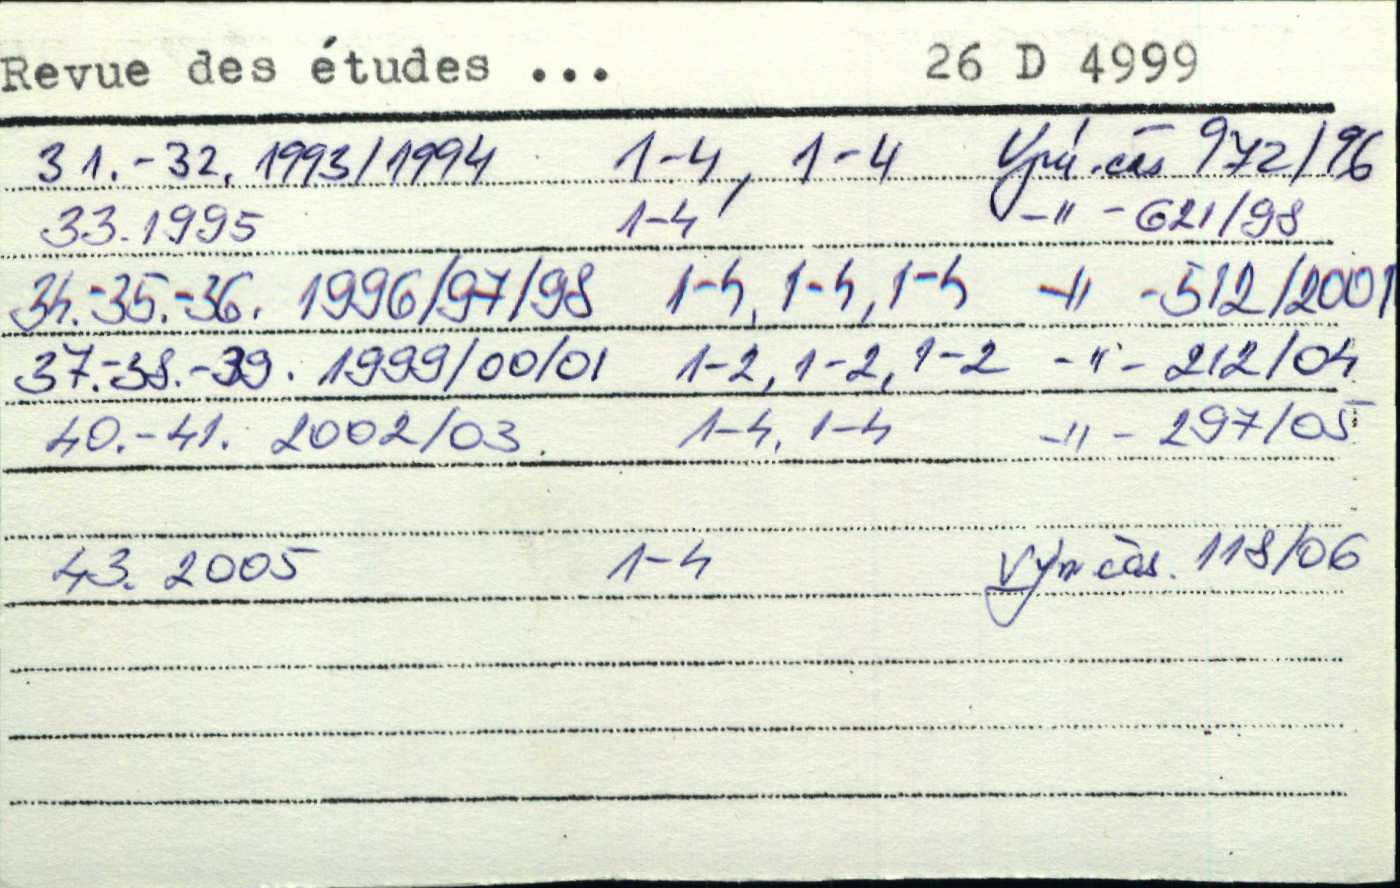 Revue des études ... 26 D 4999
31.-32. 1993/1994 1-4, 1-4 Vým. čas 972/96
33. 1995 1-4 -"- 621/98
34.-35.-36. 1996/97/98 1-4, 1-4, 1-4 -"- 512/2001
37.-38.-39. 1999/00/01 1-2, 1-2, 1-2 -"- 212/04
40.-41. 2002/03. 1-4, 1-4 -"- 297/05
43. 2005 1-4 Vým čas. 118/06